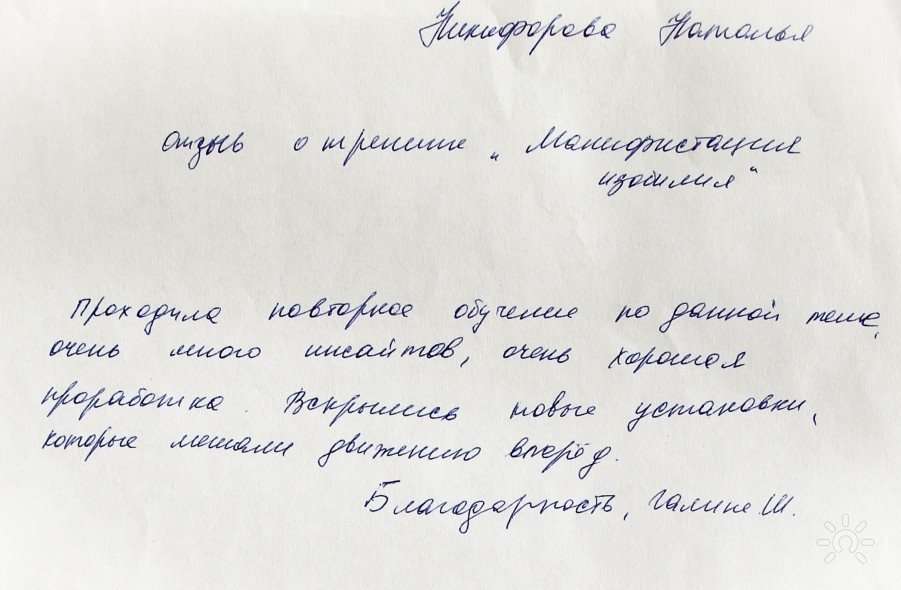 Никифорова Наталья
отзыв о тренинге „Манифистация
изобилия"
Проходила повторное обучение по данной теме,
очень много инсайтов, очень хорошая
проработка. Вскрылись новые установки,
которые мешали движению вперёд.
Благодарность, Галине Ш.